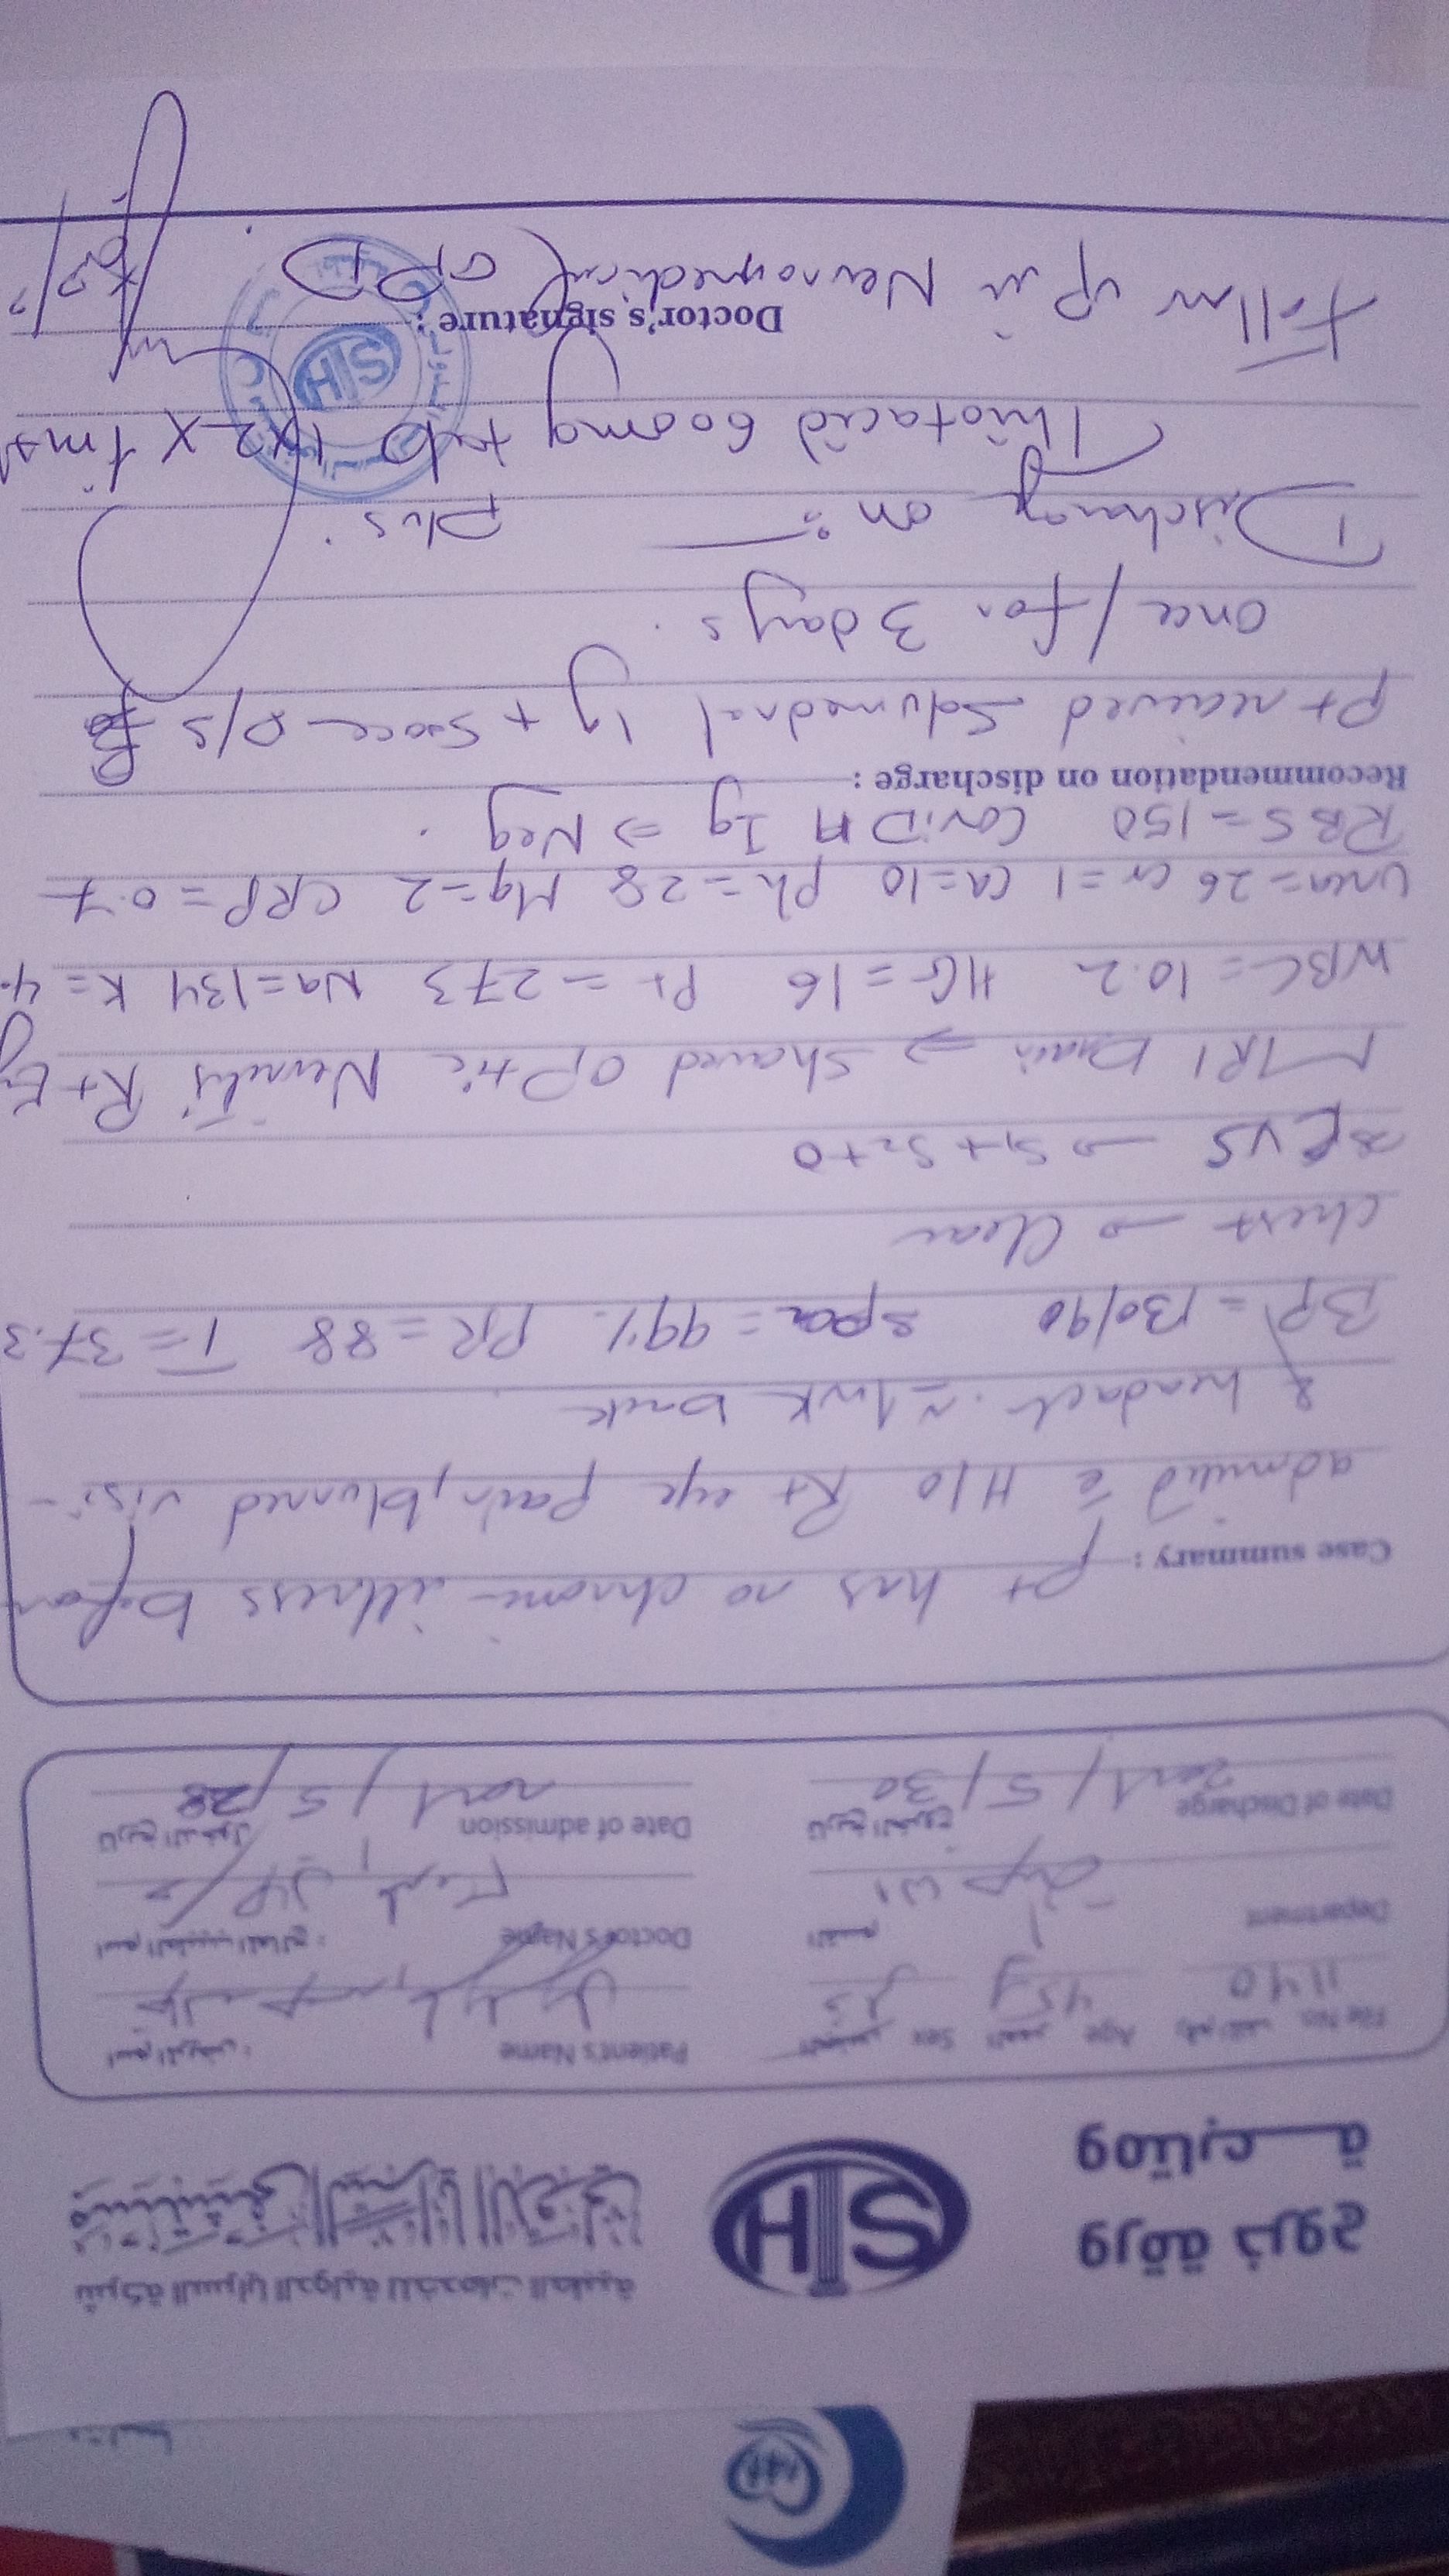 شركة السرايا الدولية للخدمات الطبية
ورقة خروج
وتقارنة
SIH
File No. رقم الملف Age العمر Sex الجنس
Patient's Name اسم المريض :
1140 45y
Department القسم
Doctor's Name اسم الطبيب المعالج :
Date of Discharge تاريخ الخروج
2021/5/30
Date of admission تاريخ الدخول
2021/5/28
Case summary : pt has no chronic illness before
admitted c H/O Rt eye pain, blurred visi-
& headach. ≈ 1wk back
BP = 130/90 spo2 = 99% PR = 88 T = 37.3
chest → Clear
CVS → S1 + S2 + 0
MRI Brain ⇒ showed optic Neuritis Rt Ey
WBC = 10.2 HG = 16 Pt = 273 Na = 134 K = 4.
Urea = 26 cr = 1 Ca = 10 Ph = 28 Mg = 2 CRP = 0.7
RBS = 150 CoviD M Ig ⇒ Neg .
Recommendation on discharge :
pt recieved Solumedrol 1g + 500cc D/S
once / for 3 days .
Discharge on :- plus .
Thiotacid 600mg tab 1x2 x 1mo
Doctor's signature :
Follow up in Neuromedical OPD .
SIH